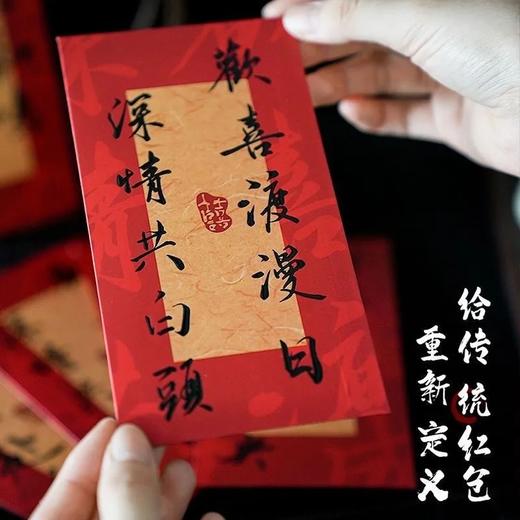 歡喜渡漫日
深情共白頭
囍
给传统红包
重新定义